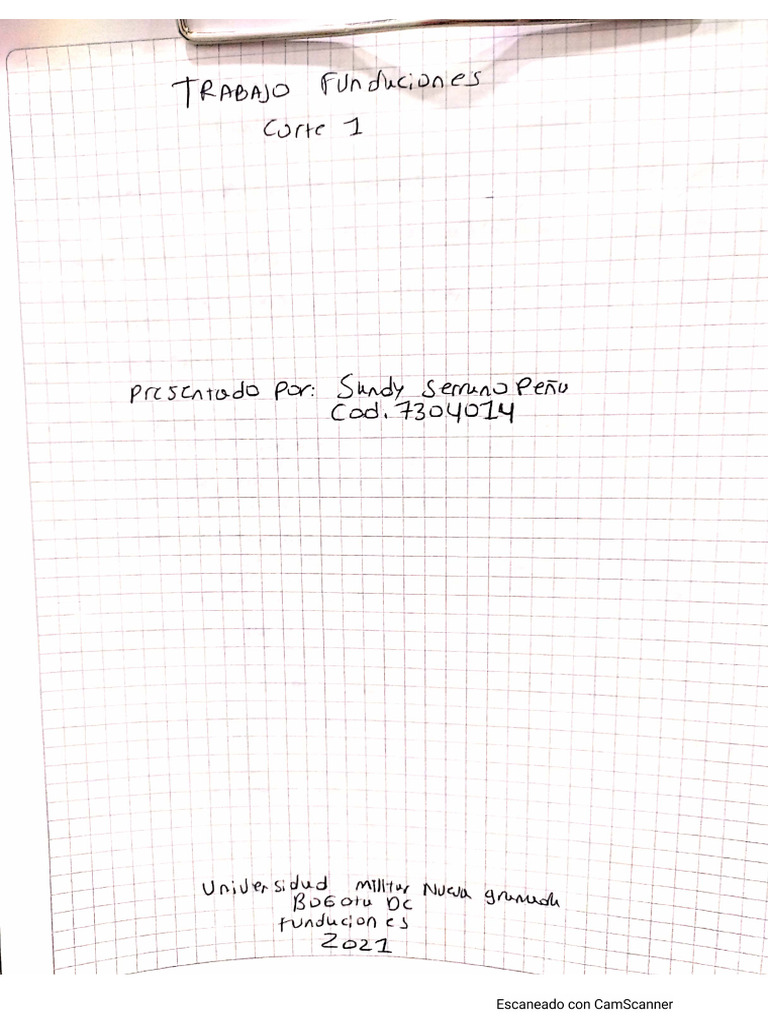 TRABAJO Funduciones
Corte 1
Presentado por: Sandy Serrano Peña
Cod. 7304014
Universidad Militar Nueva granada
BOGOta DC
funduciones
2021
Escaneado con CamScanner